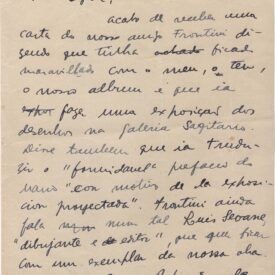 acabo de receber uma
carta do nosso amigo Frontini di-
zendo que tinha achado ficado
maravilhado com o meu, o teu,
o nosso album e que ia
expor faça uma exposição dos
desenhos na Galeria Sagitario.
Disse tambem que ia tradu-
zir o "formidavel" prefacio do
Mario "con motivo de la exposi-
cion proyectada". Frontini ainda
fala num tal Luis Seoane,
"dibujante e editor", que quer ficar
com um exemplar da nossa obra